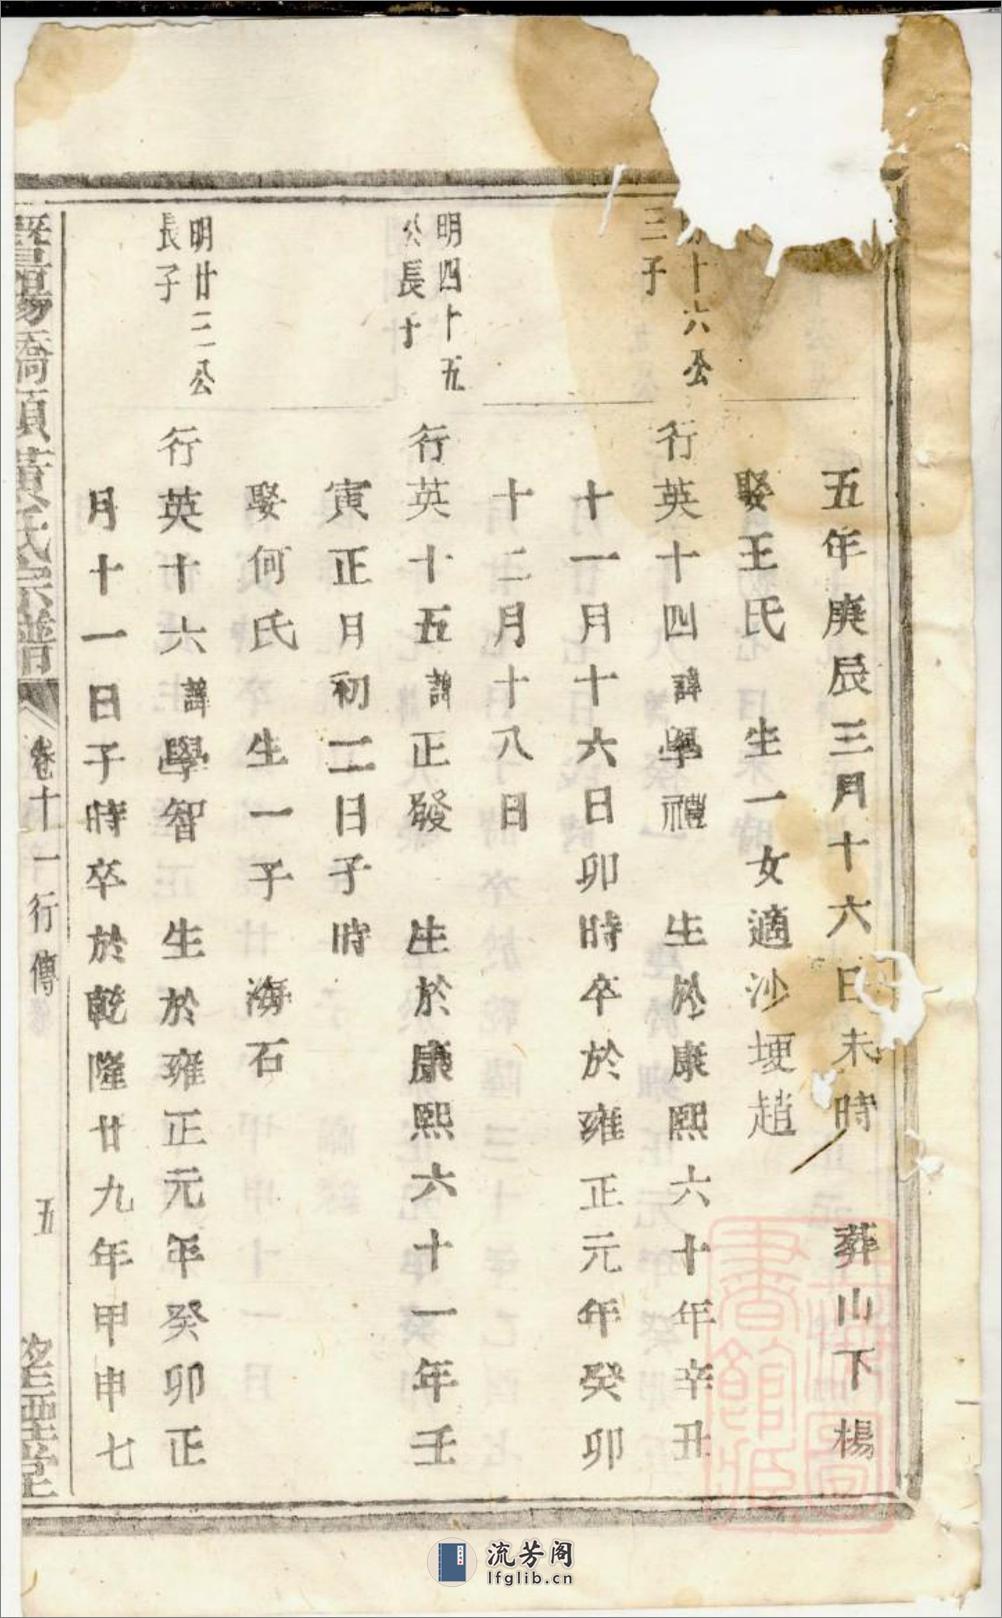 五年庚辰三月十六日未時 葬山下楊
娶王氏 生一女適沙埂趙
十六公
三子
行英十四諱學禮 生於康熙六十年辛丑
十一月十六日卯時卒於雍正元年癸卯
十二月十八日
明四十五
公長子
行英十五諱正發 生於康熙六十一年壬
寅正月初二日子時
娶何氏 生一子 海石
明廿二公
長子
行英十六諱學智 生於雍正元年癸卯正
月十一日子時卒於乾隆廿九年甲申七
暨陽橋頭黃氏宗譜 卷十一行傳 五 堂
流芳阁
lfglib.cn